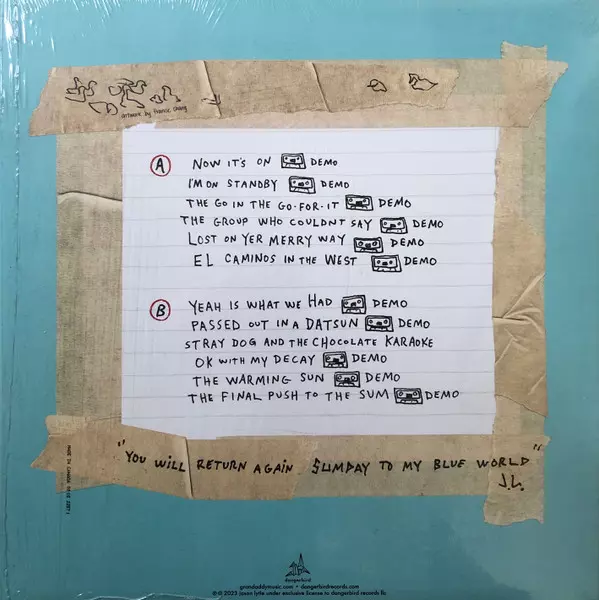 artwork by Francie Chang
A
NOW IT'S ON DEMO
I'M ON STANDBY DEMO
THE GO IN THE GO-FOR-IT DEMO
THE GROUP WHO COULDNT SAY DEMO
LOST ON YER MERRY WAY DEMO
EL CAMINOS IN THE WEST DEMO
B
YEAH IS WHAT WE HAD DEMO
PASSED OUT IN A DATSUN DEMO
STRAY DOG AND THE CHOCOLATE KARAOKE
OK WITH MY DECAY DEMO
THE WARMING SUN DEMO
THE FINAL PUSH TO THE SUM DEMO
"YOU WILL RETURN AGAIN SUMDAY TO MY BLUE WORLD"
J.L.
MADE IN CANADA
dangerbird
grandaddymusic.com • dangerbirdrecords.com
℗ © 2023 jason lytle under exclusive license to dangerbird records llc